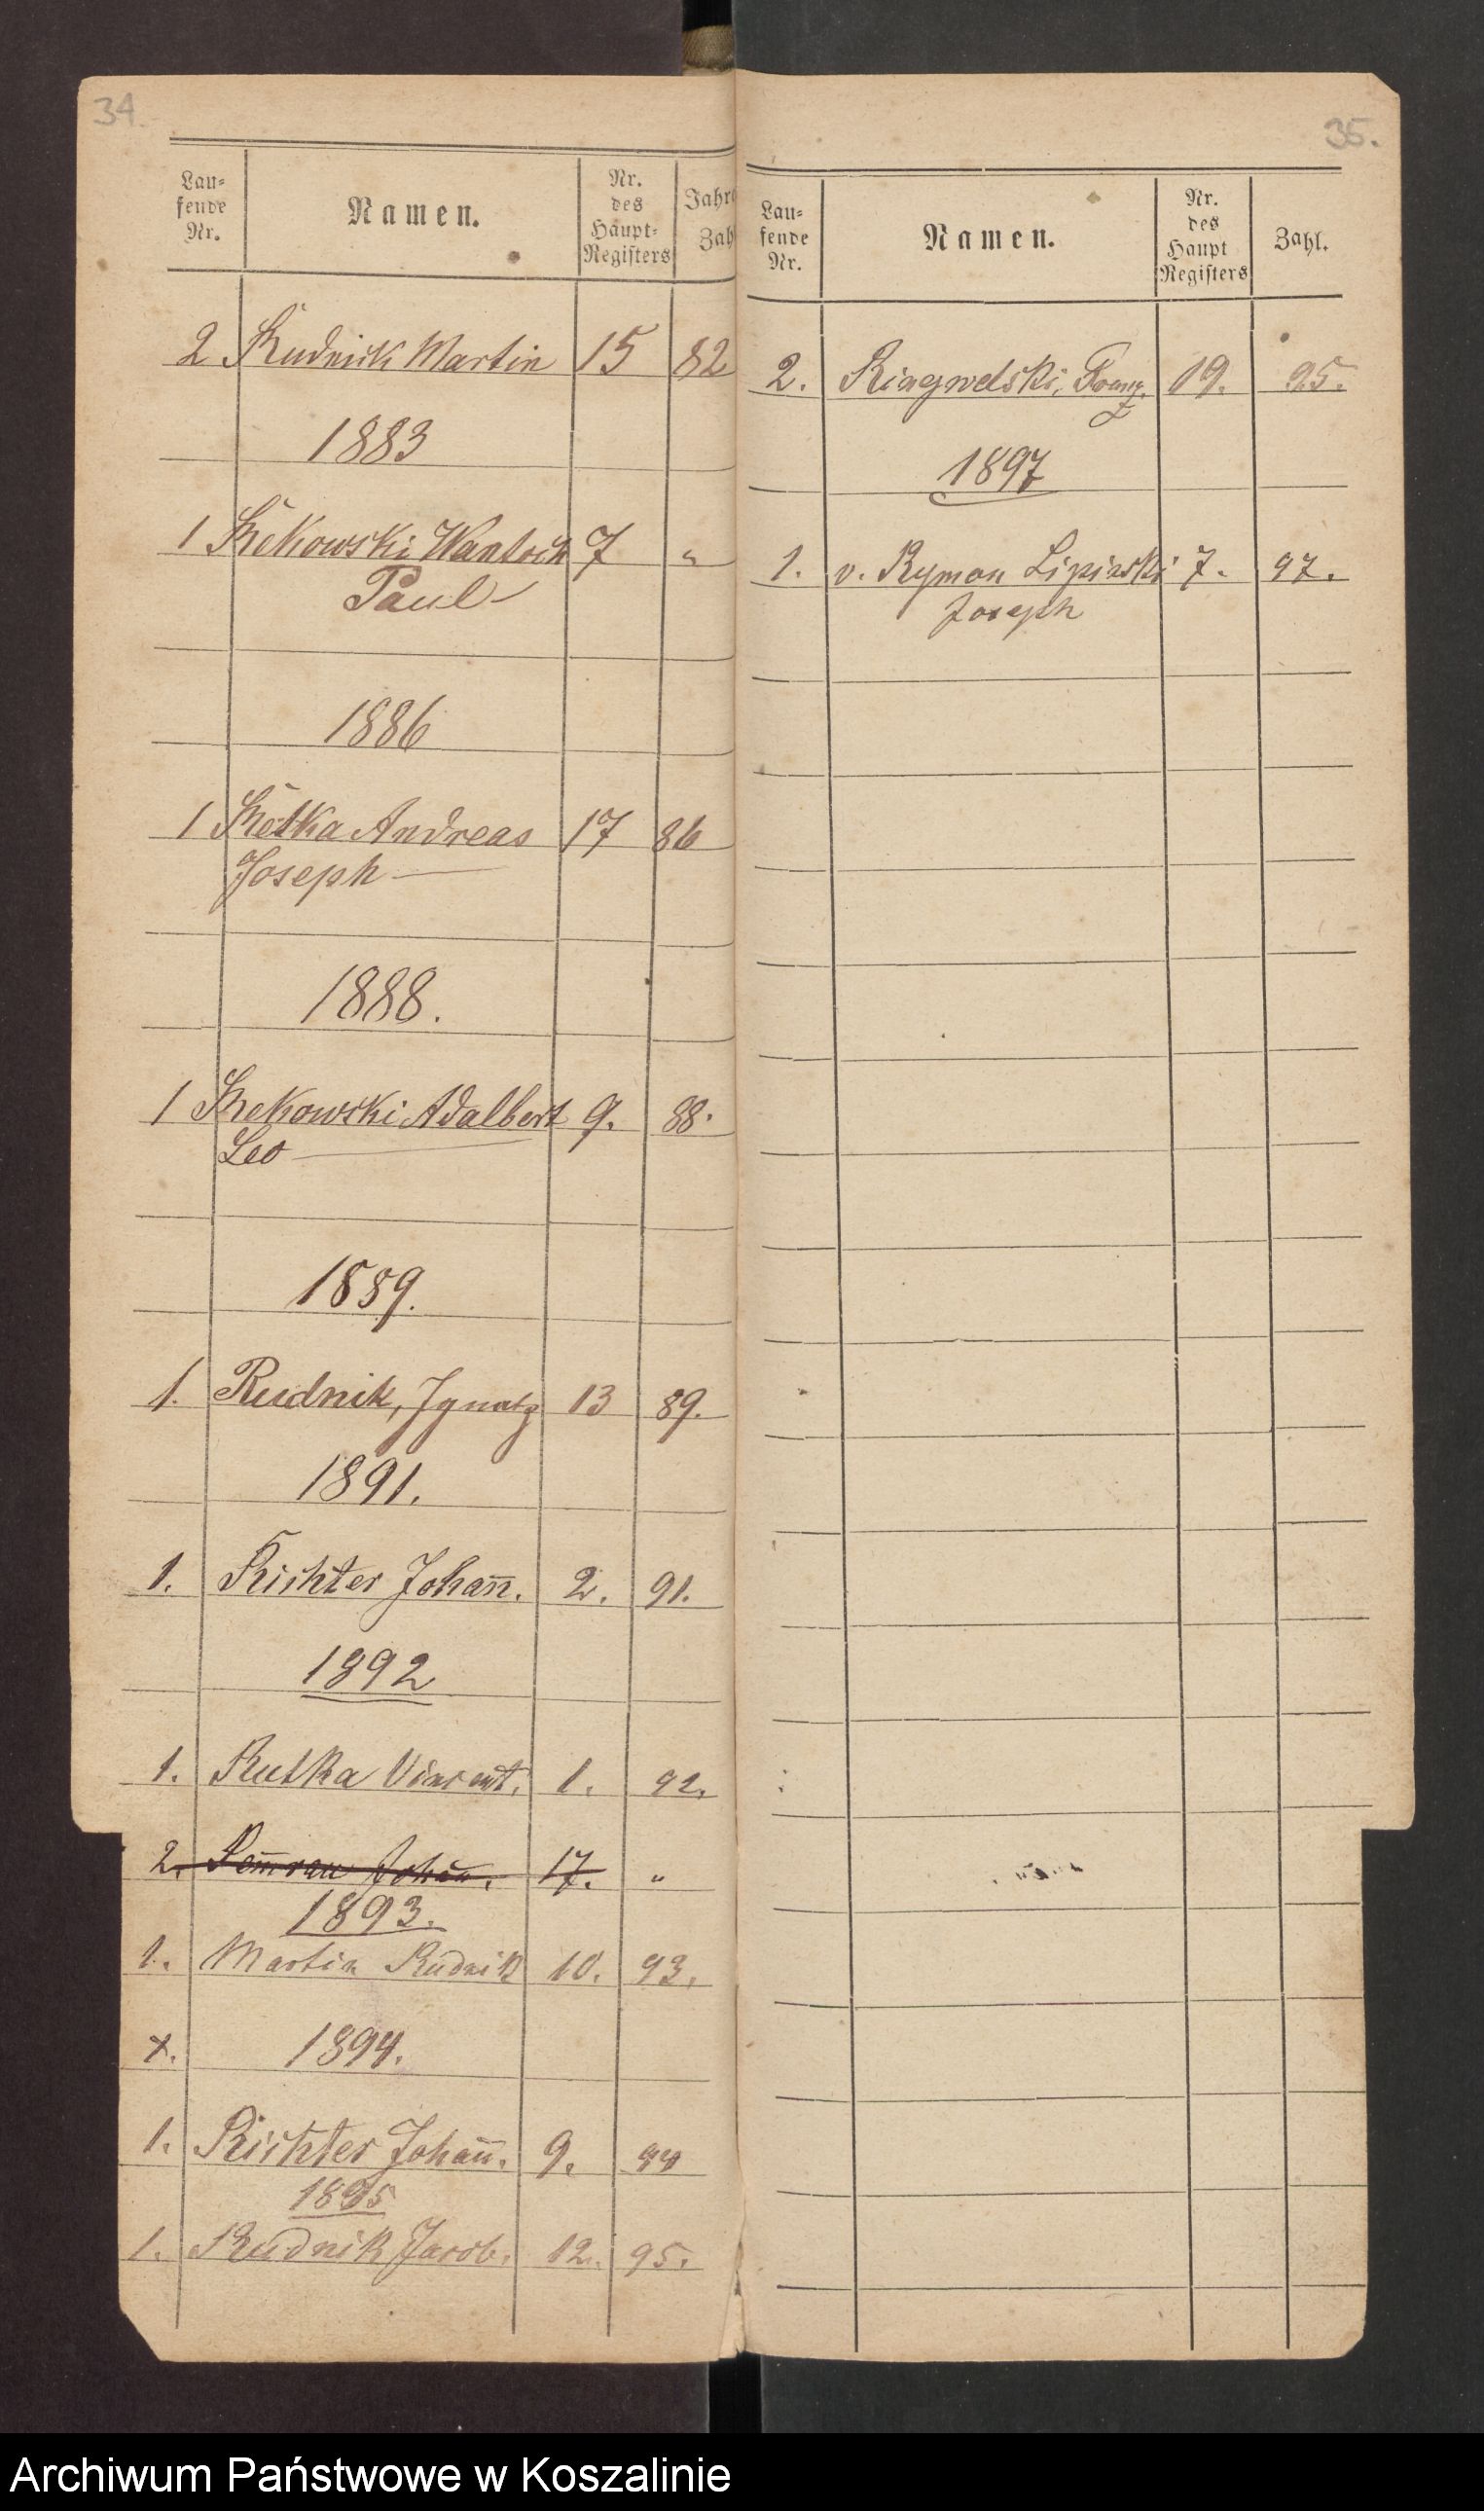 34.
Lau=
fende
Nr.
Namen.
Nr.
des
Haupt=
Registers
Jahre
Zahl
2 Rudnick Martin 15 82
1883
1 Rekowski Wantoch 7 "
Paul
1886
1 Rötka Andreas 17 86
Joseph
1888.
1 Rekowski Adalbert 9. 88.
Leo
1889.
1. Rudnik, Ignatz 13 89.
1891.
1. Richter Johan̄. 2. 91.
1892
1. Rutka Vincent. 1. 92.
2. Johan̄. 17. "
1893.
1. Martin Rudnik 10. 93.
x. 1894.
1. Richter Johan̄. 9. 94
1895
1. Rudnik Jacob. 12. 95.
35.
Lau=
fende
Nr.
Namen.
Nr.
des
Haupt
Registers
Zahl.
2. Ringwelski, Franz. 19. 95.
1897
1. v. Rymon Lipinski 7. 97.
Joseph
Archiwum Państwowe w Koszalinie